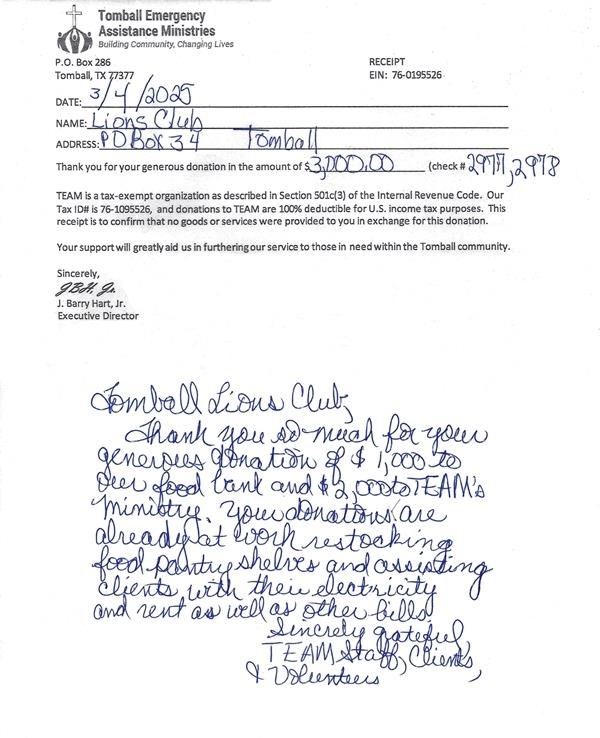 Tomball Emergency
Assistance Ministries
Building Community, Changing Lives
P.O. Box 286
Tomball, TX 77377
RECEIPT
EIN: 76-0195526
DATE: 3/4/2025
NAME: Lions Club
ADDRESS: PO Box 34 Tomball
Thank you for your generous donation in the amount of $3,000.00 (check # 2977, 2978
TEAM is a tax-exempt organization as described in Section 501c(3) of the Internal Revenue Code. Our
Tax ID# is 76-1095526, and donations to TEAM are 100% deductible for U.S. income tax purposes. This
receipt is to confirm that no goods or services were provided to you in exchange for this donation.
Your support will greatly aid us in furthering our service to those in need within the Tomball community.
Sincerely,
JBH, Jr.
J. Barry Hart, Jr.
Executive Director
Tomball Lions Club,
Thank you so much for your
generous donation of $1,000 to
our food bank and $2,000 to TEAM's
ministry. Your donations are
already at work restocking
food pantry shelves and assisting
clients with their electricity
and rent as well as other bills.
Sincrely grateful,
TEAM Staff, Clients,
& Volunteers